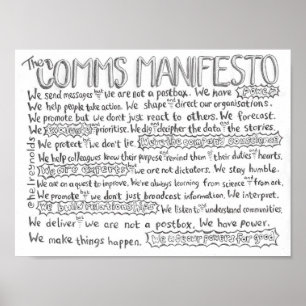 The COMMS MANIFESTO
We send messages and we are not a postbox. We have POWER.
We help people take action. We shape and direct our organisations.
We promote but we don't just react to others. We forecast.
We prioritise. We dig and decipher the data and the stories.
We protect and we don't lie.
We help colleagues know their purpose and remind them of their duties and hearts.
We are experts but we are not dictators. We stay humble.
We are on a quest to improve. We're always learning from science and from art.
We promote but we don't just broadcast information. We interpret.
We build relationships. We listen to and understand communities.
We deliver but we are not a postbox. We have power.
We make things happen. We use our powers for good.
@helreynolds